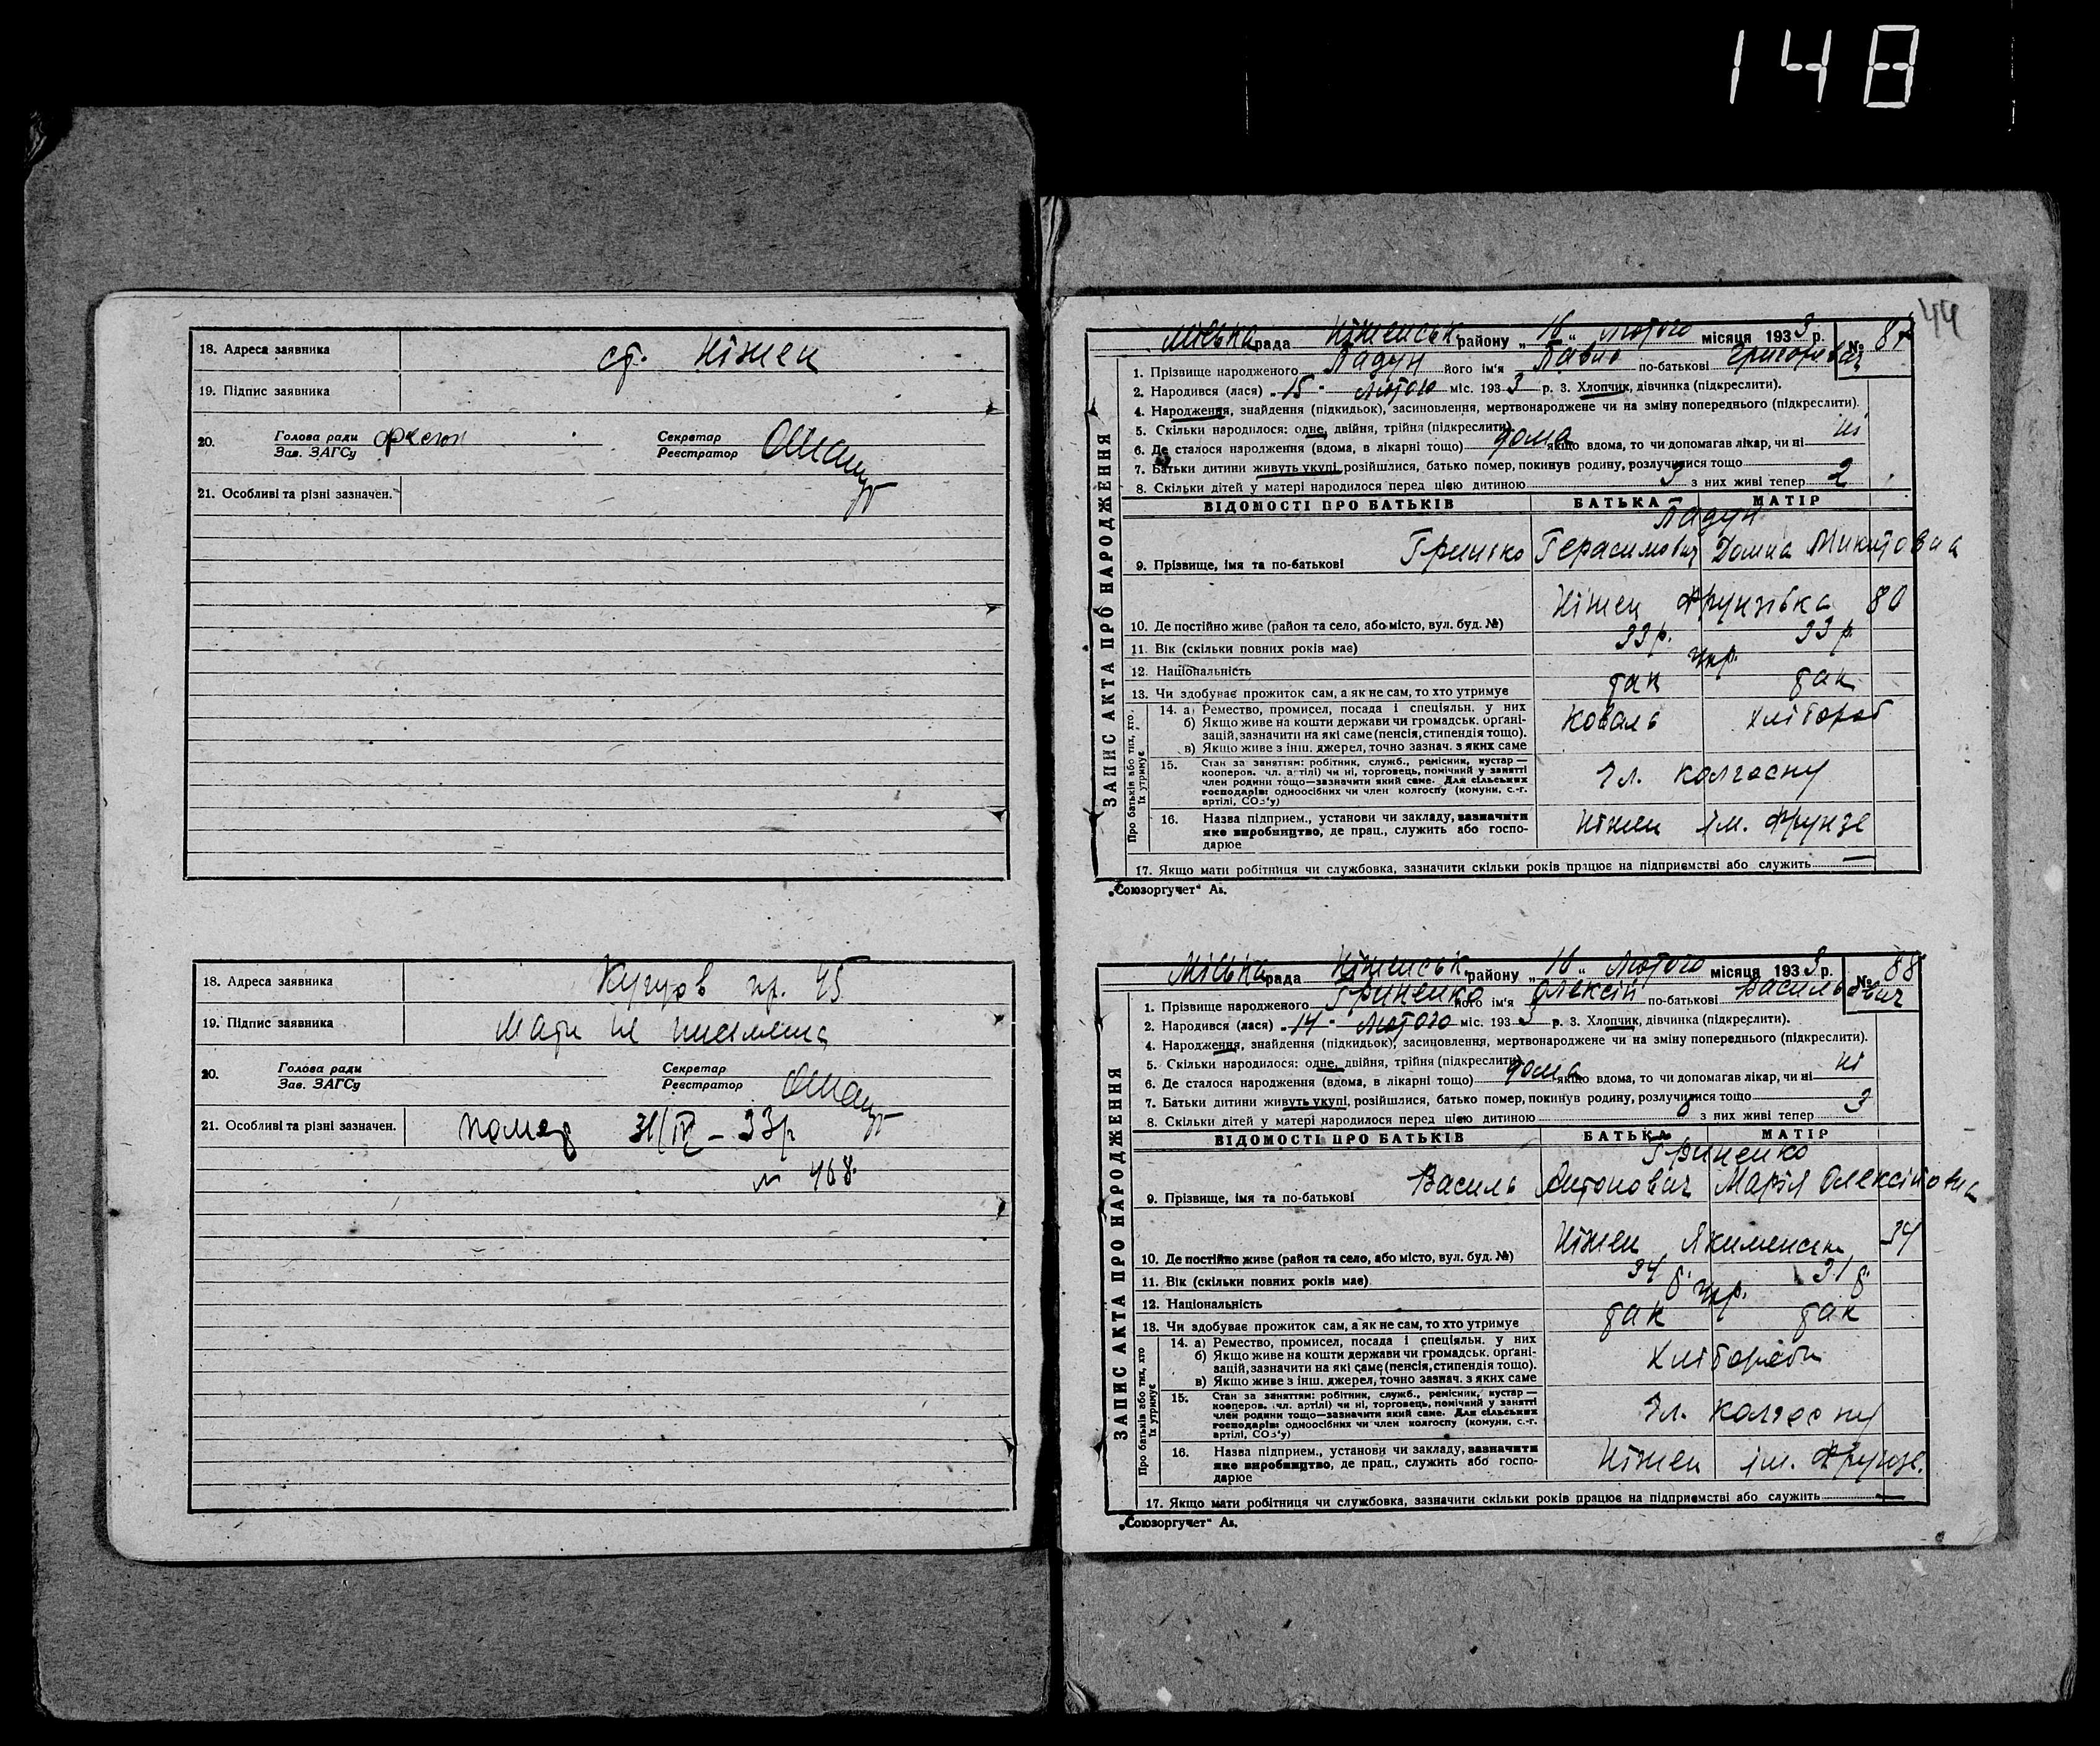 148
18. Адреса заявника ст. Ніжен
19. Підпис заявника
20. Голова ради
Зав. ЗАГСу
Секретар
Реєстратор
21. Особливі та різні зазначен.
18. Адреса заявника пр. 45
19. Підпис заявника Мати не письменна
20. Голова ради
Зав. ЗАГСу
Секретар
Реєстратор
21. Особливі та різні зазначен. помер 31/IV – 33р
№ 468.
44
ЗАПИС АКТА ПРО НАРОДЖЕННЯ
Міська рада Ніженськ. району „ 16 “ Лютого місяця 1933 р. № 87
1. Прізвище народженого Падун його ім'я Павло по-батькові Григорович
2. Народився (лася) „ 15 " Лютого міс. 1933 р. 3. Хлопчик, дівчинка (підкреслити).
4. Народження, знайдення (підкидьок), засиновлення, мертвонароджене чи на зміну попереднього (підкреслити).
5. Скільки народилося: одне, двійня, трійня (підкреслити)
6. Де сталося народження (вдома, в лікарні тощо) дома якщо вдома, то чи допомагав лікар, чи ні ні
7. Батьки дитини живуть укупі, розійшлися, батько помер, покинув родину, розлучилися тощо
8. Скільки дітей у матері народилося перед цією дитиною 3 з них живі тепер 2
ВІДОМОСТІ ПРО БАТЬКІВ БАТЬКА МАТІР
Падун
9. Прізвище, імя та по-батькові Гринько Герасимович Домна Микитовна
10. Де постійно живе (район та село, або місто, вул. буд. №) Ніжен Фрунзівка 80
11. Вік (скільки повних років має) 33 р. 33 р
12. Національність Укр.
13. Чи здобуває прожиток сам, а як не сам, то хто утримує так так
Про батьків або тих, хто їх утримує
14. а) Ремество, промисел, посада і спеціяльн. у них
б) Якщо живе на кошти держави чи громадськ. органі-
зацій, зазначити на які саме (пенсія, стипендія тощо).
в) Якщо живе з інш. джерел, точно зазнач. з яких саме
Коваль хлібороб
15. Стан за заняттям: робітник, служб., ремісник, кустар —
кооперов. чл. артілі) чи ні, торговець, помічний у занятті
член родини тощо—зазначити який саме. Для сільських
господарів: одноосібних чи член колгоспу (комуни, с.-г.
артілі, СОЗ'у)
Чл. колгоспу
16. Назва підприєм., установи чи закладу, зазначити
яке виробництво, де прац., служить або госпо-
дарює
Ніжен ім. Фрунзе
17. Якщо мати робітниця чи службовка, зазначити скільки років працює на підприємстві або служить —
„Союзоргучет“ Ав.
ЗАПИС АКТА ПРО НАРОДЖЕННЯ
Міська рада Ніженськ. району „ 16 “ Лютого місяця 1933 р. № 88
1. Прізвище народженого Гриненко його ім'я Олексій по-батькові Васильович
2. Народився (лася) „ 14 " Лютого міс. 1933 р. 3. Хлопчик, дівчинка (підкреслити).
4. Народження, знайдення (підкидьок), засиновлення, мертвонароджене чи на зміну попереднього (підкреслити).
5. Скільки народилося: одне, двійня, трійня (підкреслити)
6. Де сталося народження (вдома, в лікарні тощо) дома якщо вдома, то чи допомагав лікар, чи ні ні
7. Батьки дитини живуть укупі, розійшлися, батько помер, покинув родину, розлучилися тощо
8. Скільки дітей у матері народилося перед цією дитиною з них живі тепер 3
ВІДОМОСТІ ПРО БАТЬКІВ БАТЬКА МАТІР
Гриненко
9. Прізвище, імя та по-батькові Василь Антонович Марія Олексійовна
10. Де постійно живе (район та село, або місто, вул. буд. №) Ніжен Якименськ 34
11. Вік (скільки повних років має) 34 31
12. Національність Укр.
13. Чи здобуває прожиток сам, а як не сам, то хто утримує так так
Про батьків або тих, хто їх утримує
14. а) Ремество, промисел, посада і спеціяльн. у них
б) Якщо живе на кошти держави чи громадськ. органі-
зацій, зазначити на які саме (пенсія, стипендія тощо).
в) Якщо живе з інш. джерел, точно зазнач. з яких саме
Хлібороби
15. Стан за заняттям: робітник, служб., ремісник, кустар —
кооперов. чл. артілі) чи ні, торговець, помічний у занятті
член родини тощо—зазначити який саме. Для сільських
господарів: одноосібних чи член колгоспу (комуни, с.-г.
артілі, СОЗ'у)
Чл. колгоспу
16. Назва підприєм., установи чи закладу, зазначити
яке виробництво, де прац., служить або госпо-
дарює
Ніжен ім. Фрунзе.
17. Якщо мати робітниця чи службовка, зазначити скільки років працює на підприємстві або служить —
„Союзоргучет“ Ав.